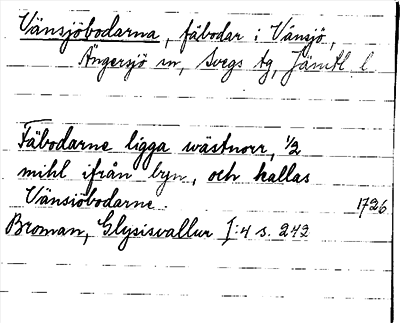 Vänsjöbodarna, fäbodar i Vänsjö,
Ängersjö sn, Svegs tg, Jämtl. l.
Fäbodarne ligga wästnorr, 1/2
mihl ifrån byn, och kallas
Vänsiöbodarne. 1726
Broman, Glysisvallur I:4 s. 242